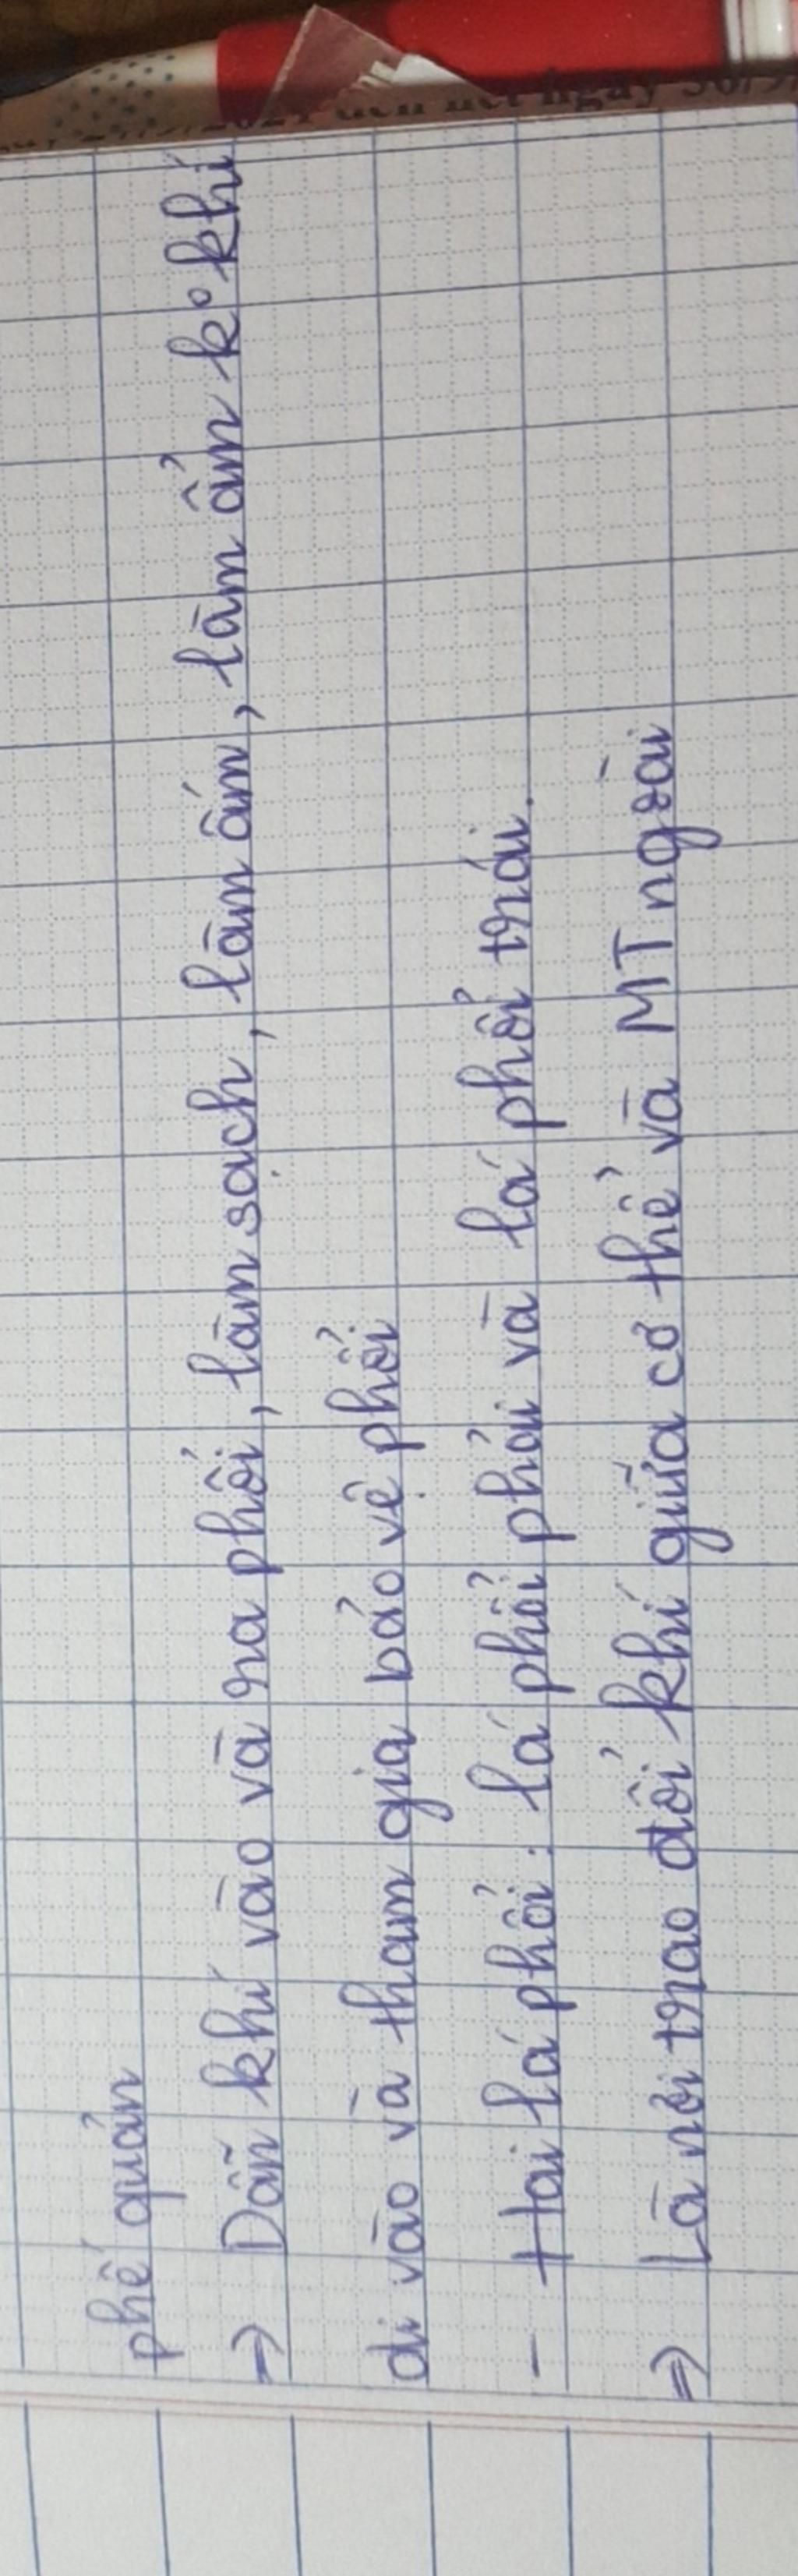 phế quản
=> Dẫn khí vào và ra phổi, làm sạch, làm ấm, làm ẩm k° khí
đi vào và tham gia bảo vệ phổi
- Hai lá phổi: lá phổi phải và lá phổi trái.
=> Là nơi trao đổi khí giữa cơ thể và MT ngoài